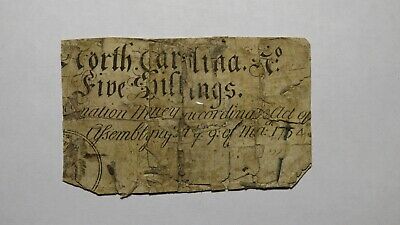 North Carolina. No.
Five Shillings.
mation Money according to Act of
Assembly 9 of Mar. 1754.